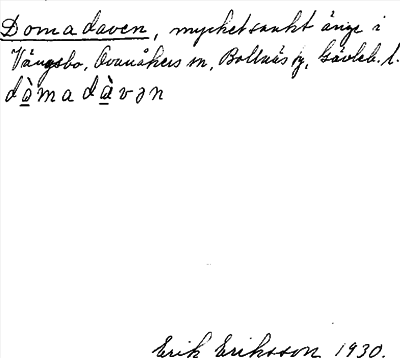 Domadaven, mycket sankt änge i
Vängsbo, Ovanåkers sn, Bollnäs fg, Gävleb. l.
dòmadàvən
Erik Eriksson 1930.